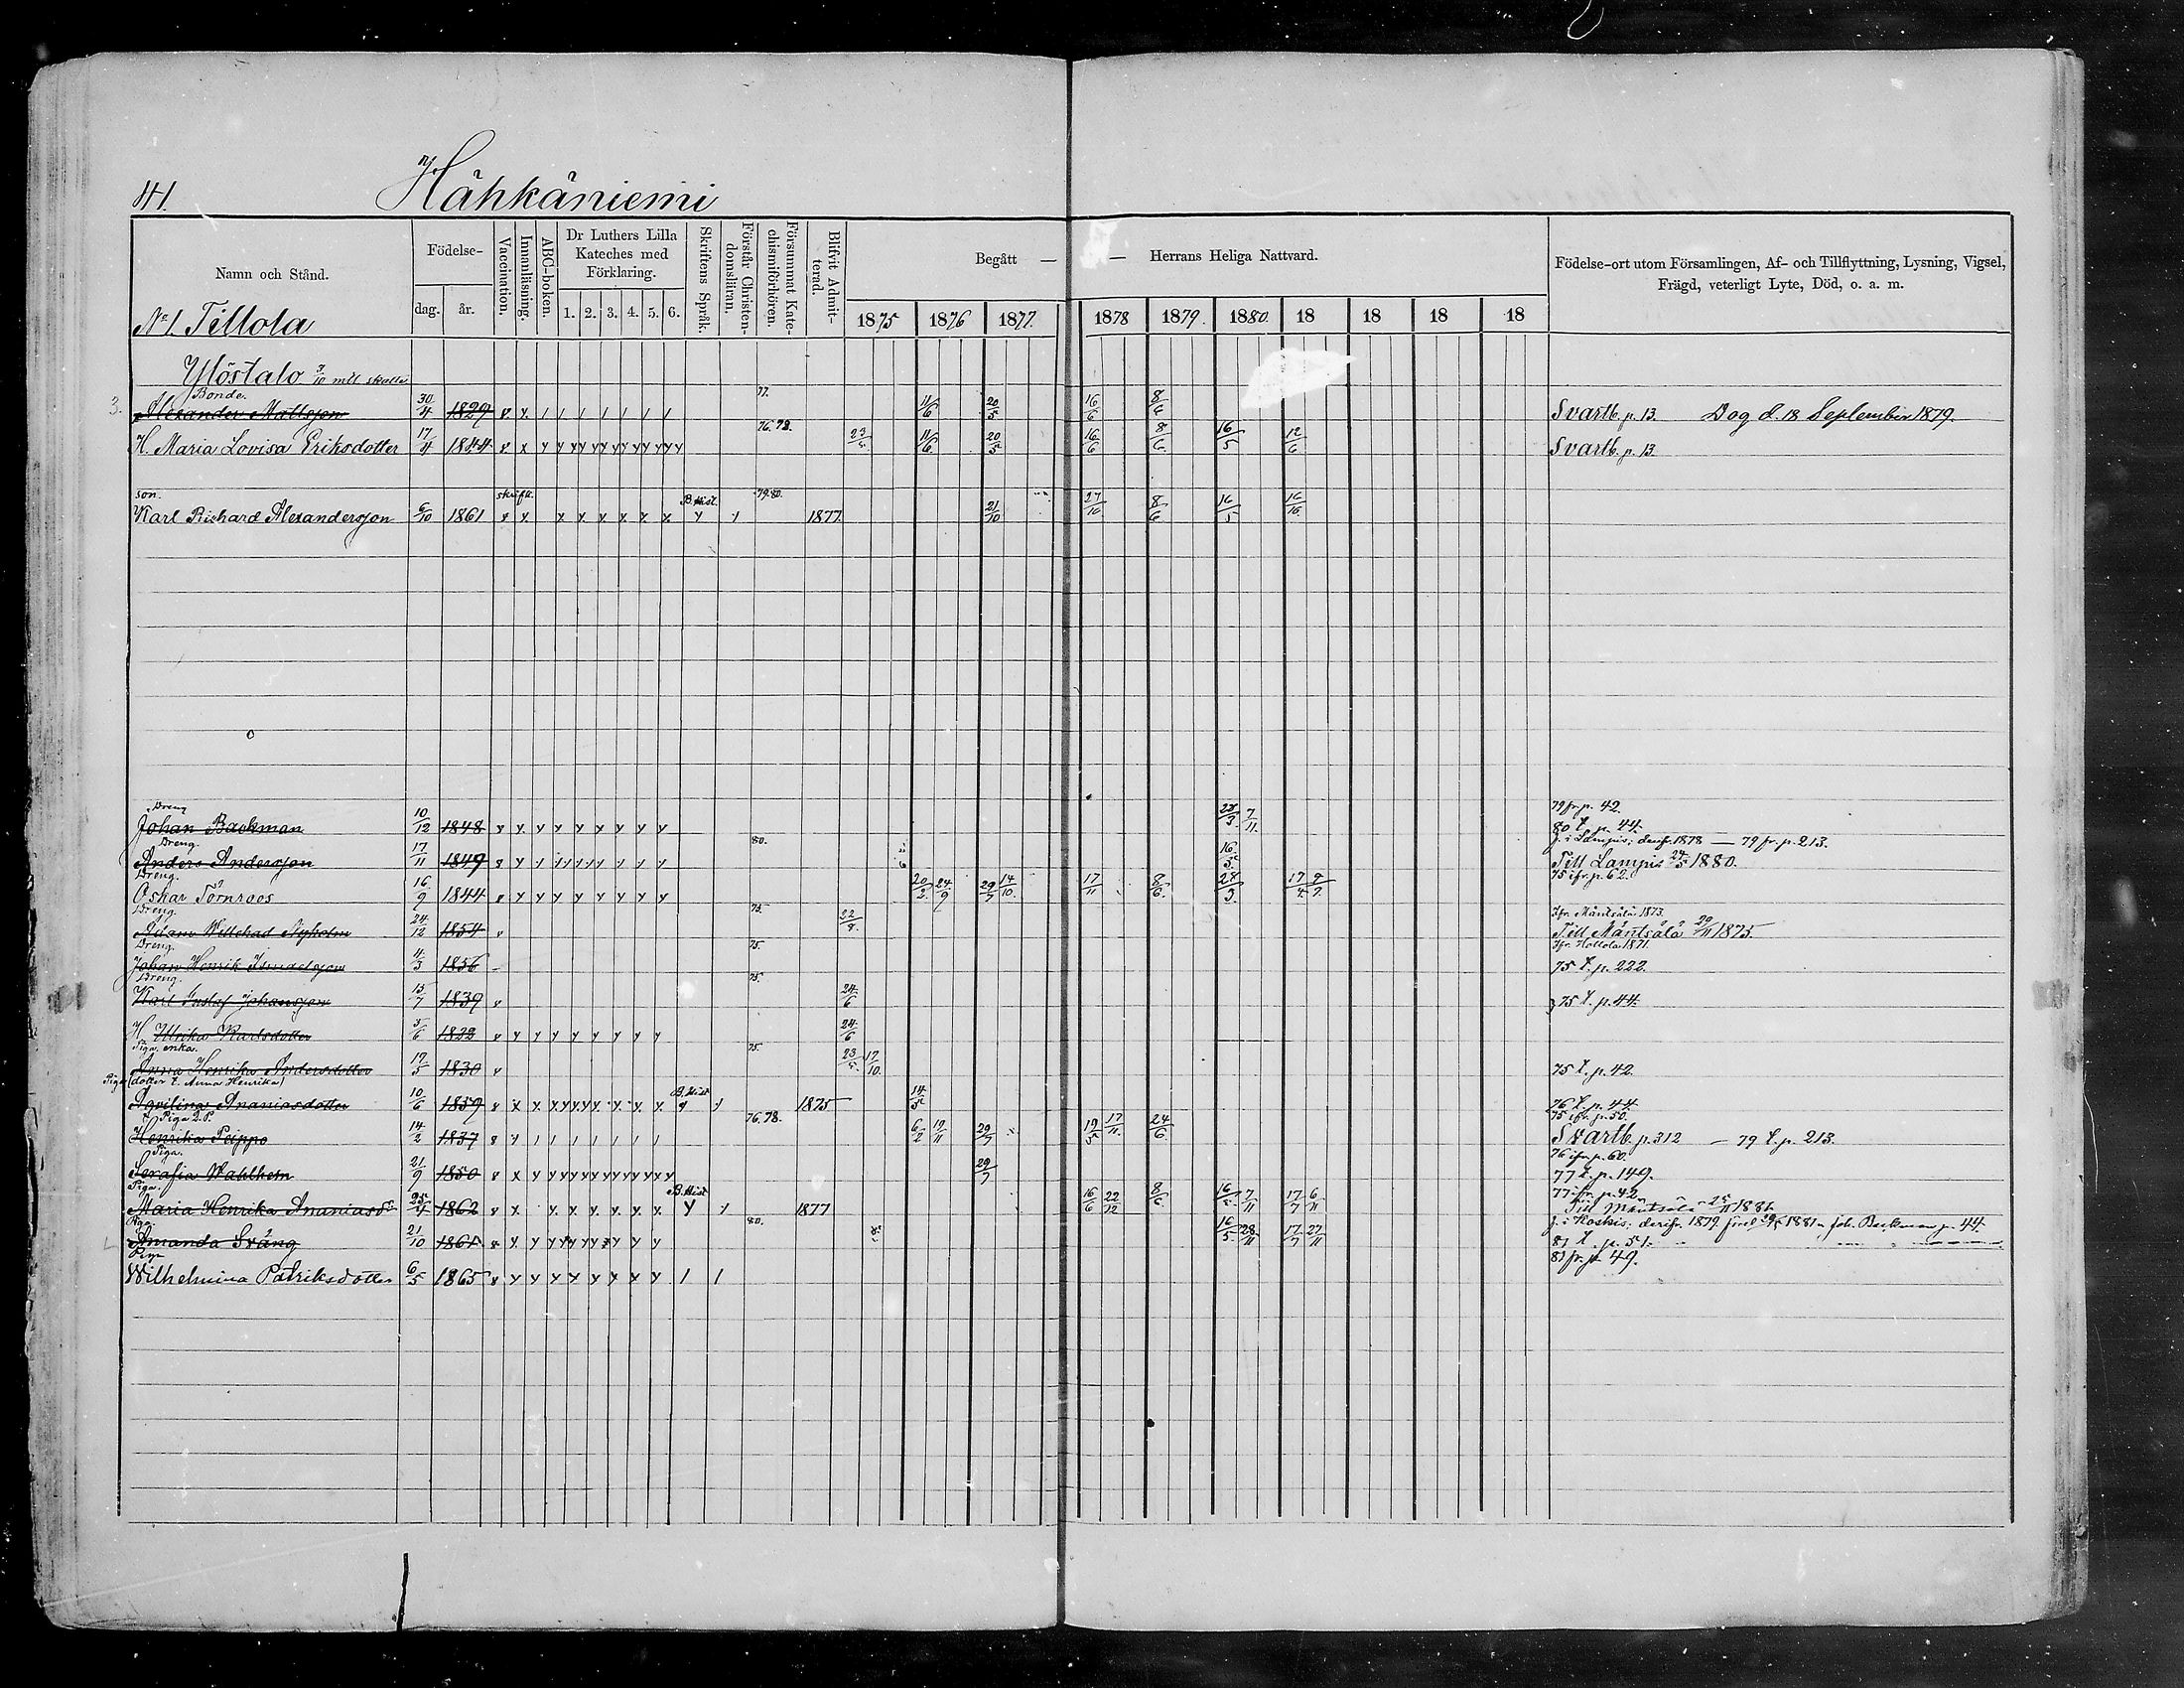 41. Hähkäniemi
Namn och Stånd. Födelse- dag. år. Vaccination. Innanläsning. ABC-boken. Dr Luthers Lilla Kateches med Förklaring. 1. 2. 3. 4. 5. 6. Skriftens Språk. Förstår Christendomsläran. Försummat Katechismiförhören. Blifvit Admitterad. Begått — — Herrans Heliga Nattvard. Födelse-ort utom Församlingen, Af- och Tillflyttning, Lysning, Vigsel, Frägd, veterligt Lyte, Död, o. a. m.
No 1. Tillola 1875 1876 1877. 1878 1879. 1880. 18 18 18 18
Ylöstalo 3/10 mtl skatte
Bonde. 77.
3. Alexander Mattsson 30/4 1829 11/6 20/5 16/6 8/6 Svartb. p. 13. Dog d. 18 September 1879.
76. 78.
H. Maria Lovisa Eriksdotter 17/4 1844 23/5 11/6 20/5 16/6 8/6 16/5 12/6 Svartb. p. 13.
son. B. Hist. 79. 80.
Karl Richard Alexandersson 6/10 1861 1877. 21/10 27/10 8/6 16/5 16/10
Dreng 79 fr. p. 42.
Johan Backman 10/12 1848 28/3 7/11 80 t. p. 44.
Dreng. 80. 1878 — 79 fr. p. 213.
Anders Andersson 17/11 1849 16/5 Till Lampis 24/5 1880.
Dreng. 75 ifr. p. 62.
Oskar Törnroos 16/9 1844 20/2 24/9 29/7 14/10 17/11 8/6 28/3 17/7
Dreng. 75. Ifr. Mäntsälä 1873.
Adam Willehad Nyholm 24/12 1854 22/8 Till Mäntsälä 29/11 1875.
Dreng. 75. Ifr. Hollola 1871.
Johan Henrik Ismaelsson 4/3 1856 75 t. p. 222.
Dreng. 75.
Karl Gustaf Johansson 15/7 1839 24/6 75 t. p. 44.
H Ulrika Karlsdotter 5/6 1822 24/6
Piga, enka. 75.
Anna Henrika Andersdotter 17/5 1830 23/5 17/10 75 t. p. 42.
Piga (dotter t. Anna Henrika) B. Hist
Aqvilina Ananiasdotter 10/6 1859 1875 14/5 76 t. p. 44.
Piga 76. 78. 75 ifr. p. 50.
Henrika Peippo 14/2 1837 6/2 19/11 29/7 19/5 17/11 24/6 Svartb. p. 312 — 79 t. p. 213.
Piga. 76 ifr. p. 60.
Serafia Wahlhem 21/9 1850 29/7 77 t. p. 149.
Piga. B. Hist 77 ifr. p. 42.
Maria Henrika Ananiasdr 25/4 1862 1877 16/6 22/12 8/6 16/5 7/11 17/7 6/11 Till Mäntsälä 1881.
Piga. 80. f. i Koskis; derifr. 1879. 1881 Joh. Backman p. 44
Amanda Sväng 21/10 1861. 16/5 28/11 17/7 27/11 81 t. p. 51.
Piga 81 fr. p. 49.
Wilhelmina Patriksdotter 6/5 1865